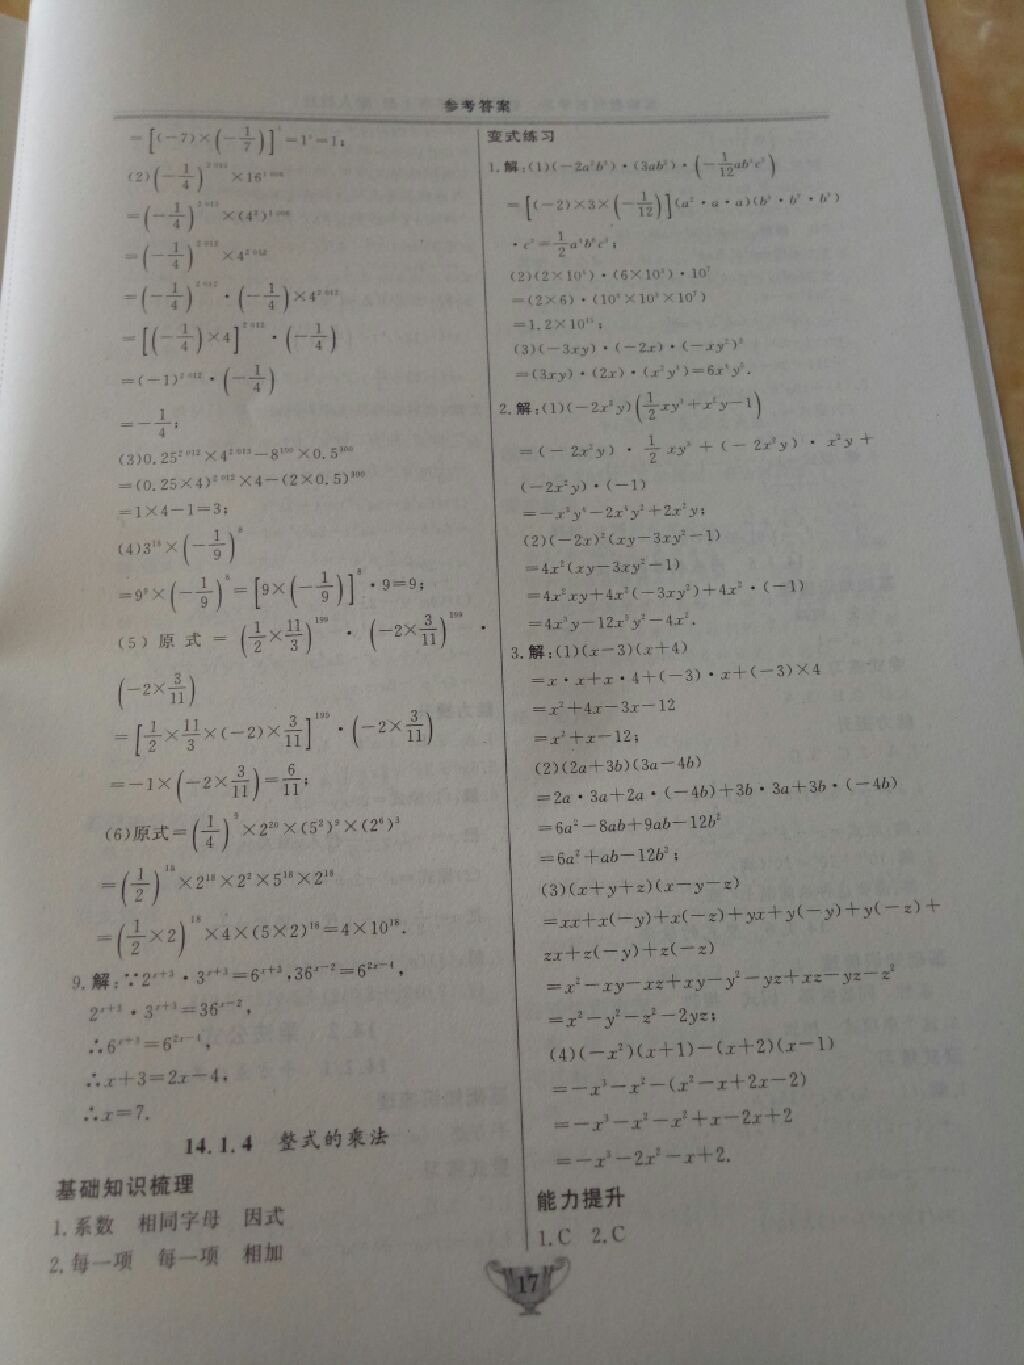 参考答案
=[(-7)×(-1/7)]=1=1;
(2)(-1/4)^2013×16^1006
=(-1/4)^2013×(4²)^1006
=(-1/4)^2013×4^2012
=(-1/4)^2012·(-1/4)×4^2012
=[(-1/4)×4]^2012·(-1/4)
=(-1)^2012·(-1/4)
=-1/4;
(3)0.25^2012×4^2013-8^100×0.5^300
=(0.25×4)^2012×4-(2×0.5)^300
=1×4-1=3;
(4)3^18×(-1/9)^8
=9^9×(-1/9)^8=[9×(-1/9)]^8·9=9;
(5)原式=(1/2×11/3)^199·(-2×3/11)^199·
(-2×3/11)
=[1/2×11/3×(-2)×3/11]^199·(-2×3/11)
=-1×(-2×3/11)=6/11;
(6)原式=(1/4)^9×2^20×(5²)^9×(2^6)^3
=(1/2)^18×2^18×2²×5^18×2^18
=(1/2×2)^18×4×(5×2)^18=4×10^18.
9.解:∵2^(x+3)·3^(x+3)=6^(x+3),36^(x-2)=6^(2x-4),
2^(x+3)·3^(x+3)=36^(x-2),
∴6^(x+3)=6^(2x-4),
∴x+3=2x-4,
∴x=7.
14.1.4 整式的乘法
基础知识梳理
1.系数 相同字母 因式
2.每一项 每一项 相加
变式练习
1.解:(1)(-2a²b³)·(3ab²)·(-1/12ab³c²)
=[(-2)×3×(-1/12)](a²·a·a)(b³·b²·b³)
·c²=1/2a⁴b⁸c²;
(2)(2×10⁵)·(6×10³)·10⁷
=(2×6)·(10⁵×10³×10⁷)
=1.2×10^16;
(3)(-3xy)·(-2x)·(-xy²)²
=(3xy)·(2x)·(x²y⁴)=6x⁴y⁵.
2.解:(1)(-2x²y)(1/2xy³+x²y-1)
=(-2x²y)·1/2xy³+(-2x²y)·x²y+
(-2x²y)·(-1)
=-x³y⁴-2x⁴y²+2x²y;
(2)(-2x)²(xy-3xy²-1)
=4x²(xy-3xy²-1)
=4x²xy+4x²(-3xy²)+4x²·(-1)
=4x³y-12x³y²-4x².
3.解:(1)(x-3)(x+4)
=x·x+x·4+(-3)·x+(-3)×4
=x²+4x-3x-12
=x²+x-12;
(2)(2a+3b)(3a-4b)
=2a·3a+2a·(-4b)+3b·3a+3b·(-4b)
=6a²-8ab+9ab-12b²
=6a²+ab-12b²;
(3)(x+y+z)(x-y-z)
=xx+x(-y)+x(-z)+yx+y(-y)+y(-z)+
zx+z(-y)+z(-z)
=x²-xy-xz+xy-y²-yz+xz-yz-z²
=x²-y²-z²-2yz;
(4)(-x²)(x+1)-(x+2)(x-1)
=-x³-x²-(x²-x+2x-2)
=-x³-x²-x²+x-2x+2
=-x³-2x²-x+2.
能力提升
1.C 2.C
17